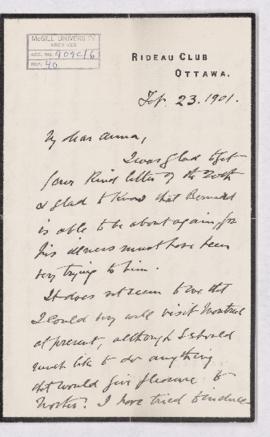 McGILL UNIVERSITY
ARCHIVES
ACC. NO.
REF. 46
RIDEAU CLUB
OTTAWA.
Feb. 23. 1901.
My dear Anna,
I was glad to get
your kind letter of the
& glad to know that Bernard
is able to be about again, for
his illness must have been
very trying to him.
It does not seem to me that
I could very well visit Montreal
at present, although I should
much like to do anything
that would give pleasure to
I have tried to induce